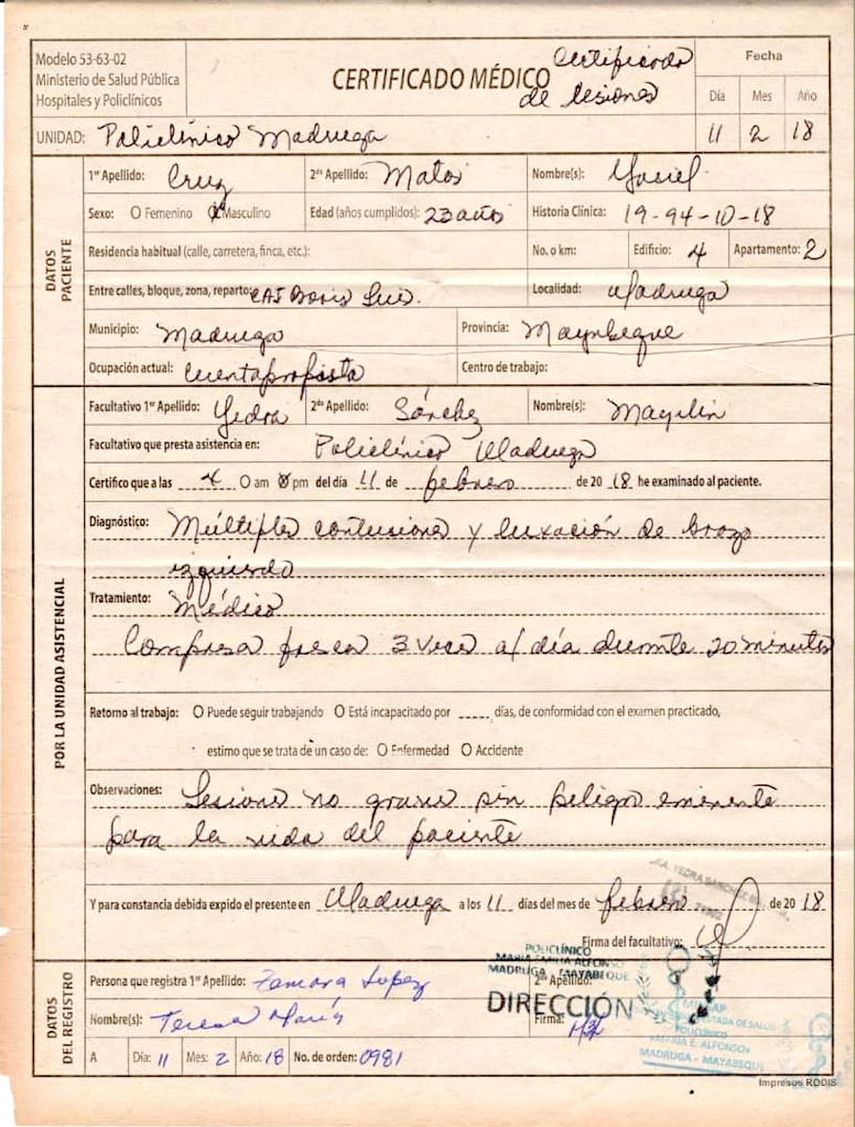 Modelo 53-63-02
Ministerio de Salud Pública
Hospitales y Policlínicos
CERTIFICADO MÉDICO
Certificado
de lesiones
Fecha
Día Mes Año
UNIDAD: Policlínico Madruga 11 2 18
DATOS PACIENTE
1er Apellido: Cruz 2do Apellido: Matos Nombre(s): Yosiel
Sexo: O Femenino Masculino Edad (años cumplidos): 23 años Historia Clínica: 19-94-10-18
Residencia habitual (calle, carretera, finca, etc.): No. o km: Edificio: 4 Apartamento: 2
Entre calles, bloque, zona, reparto: CAI Boris Luis. Localidad: Madruga
Municipio: Madruga Provincia: Mayabeque
Ocupación actual: Cuentapropista Centro de trabajo:
POR LA UNIDAD ASISTENCIAL
Facultativo 1er Apellido: Yedra 2do Apellido: Sánchez Nombre(s): Mayelin
Facultativo que presta asistencia en: Policlínico Madruga
Certifico que a las 4 O am pm del día 11 de febrero de 20 18 he examinado al paciente.
Diagnóstico: Múltiples contusiones y luxación de brazo
izquierdo
Tratamiento: Médico
Compresa fresca 3 veces al día durante 20 minutos
Retorno al trabajo: O Puede seguir trabajando O Está incapacitado por ..... días, de conformidad con el examen practicado,
estimo que se trata de un caso de: O Enfermedad O Accidente
Observaciones: Lesiones no graves sin peligro eminente
para la vida del paciente
Y para constancia debida expido el presente en Madruga a los 11 días del mes de febrero de 20 18
DRA. YEDRA SANCHEZ
Firma del facultativo:
POLICLÍNICO
MARIA EMILIA ALFONSO
MADRUGA - MAYABEQUE
DIRECCIÓN
DATOS DEL REGISTRO
Persona que registra 1er Apellido: Zamora Lopez 2do Apellido:
Nombre(s): Teresa María Firma:
MINSAP
POLICLÍNICO
«MARIA E. ALFONSO»
MADRUGA - MAYABEQUE
A Día: 11 Mes: 2 Año: 18 No. de orden: 0981
Impresos RODIS